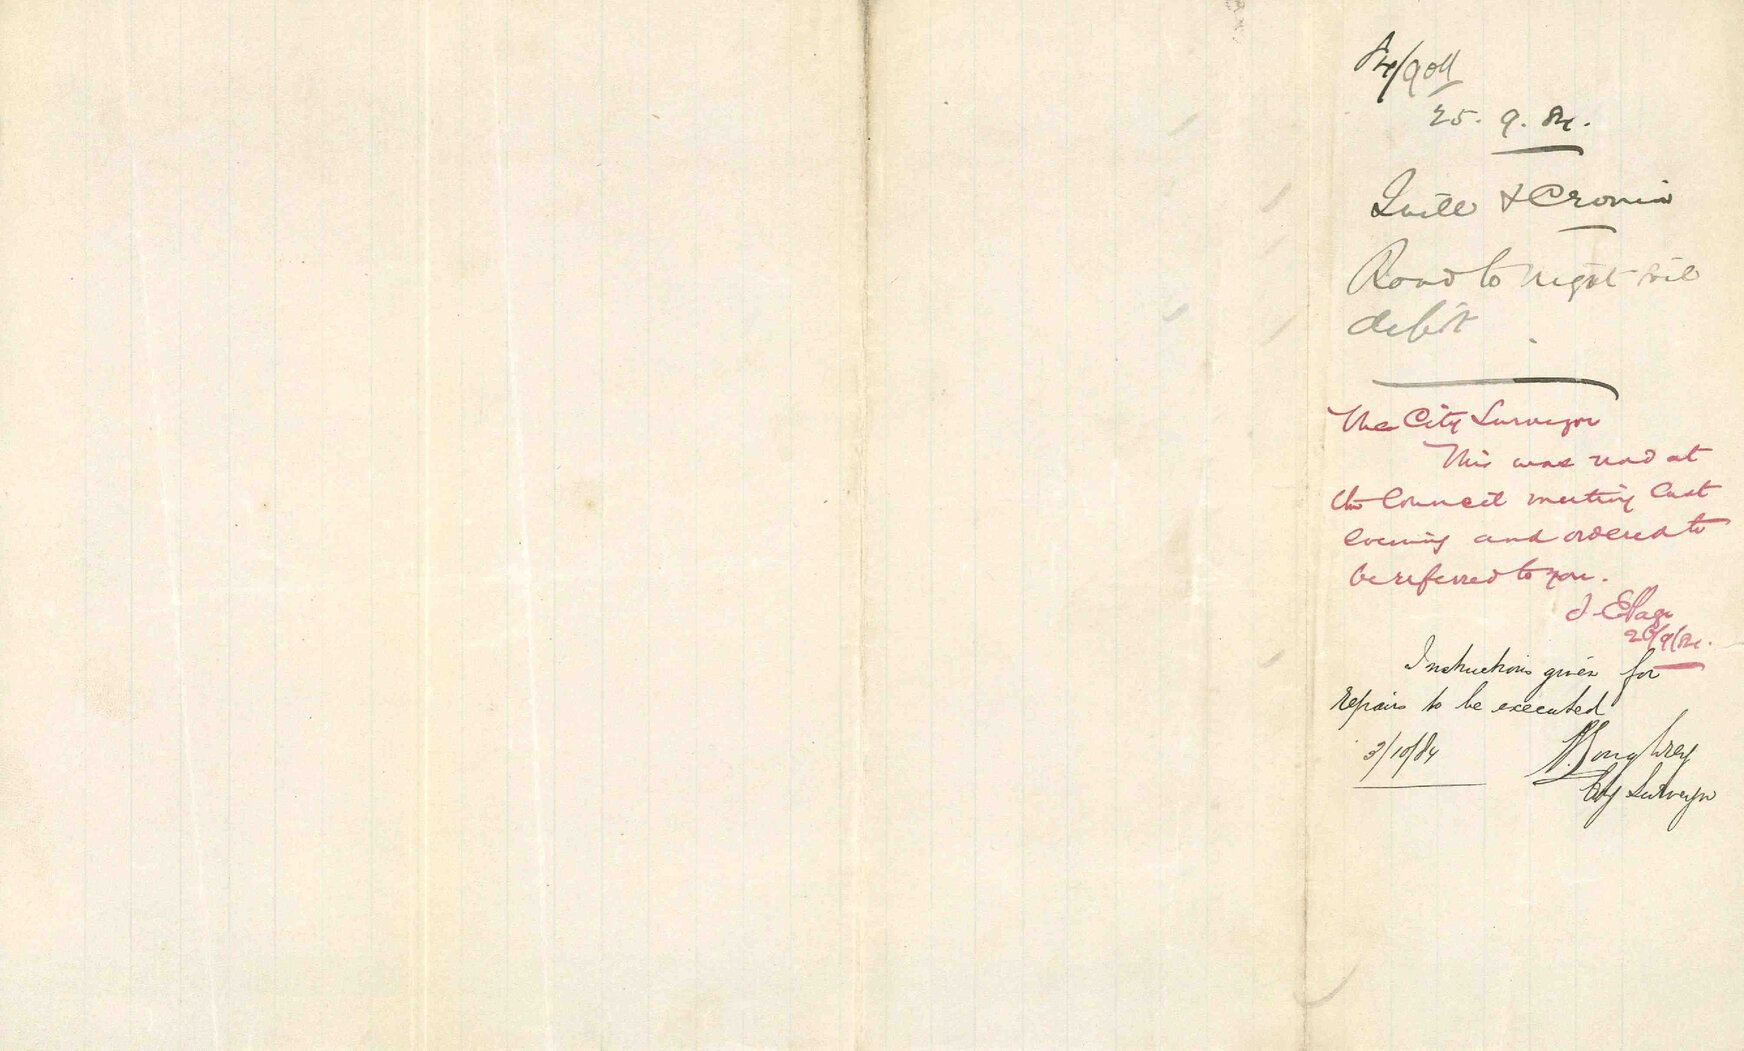 84/904
25. 9. 84.
Quill & Cronin
Road to night soil
depôt
The City Surveyor
This was read at
the Council meeting last
evening and ordered to
be referred to you.
J. E. Page
26/9/84.
Instructions given for
repairs to be executed
3/10/84 Boughrey
City Surveyor